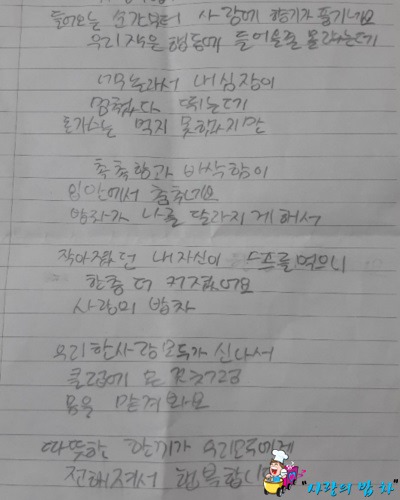 들어오는 순간부터 사랑에 향기가 풍기네요
우리작은 행동에 들어올줄 몰랐는데
너무놀라서 내심장이
멈췄다 뛰는데
돈가스는 먹지 못하지만
촉촉함과 바삭함이
입안에서 춤추네요
밥차가 나를 달라지게 해서
작아졌던 내자신이 스프를 먹으니
한층 더 커졌어요
사랑의 밥차
요리한사람 모두가 신나서
클럽에 온 것처럼
몸을 맡겨봐요
따뜻한 한끼가 우리모두에게
전해져서 행복합니다
"사랑의 밥차"